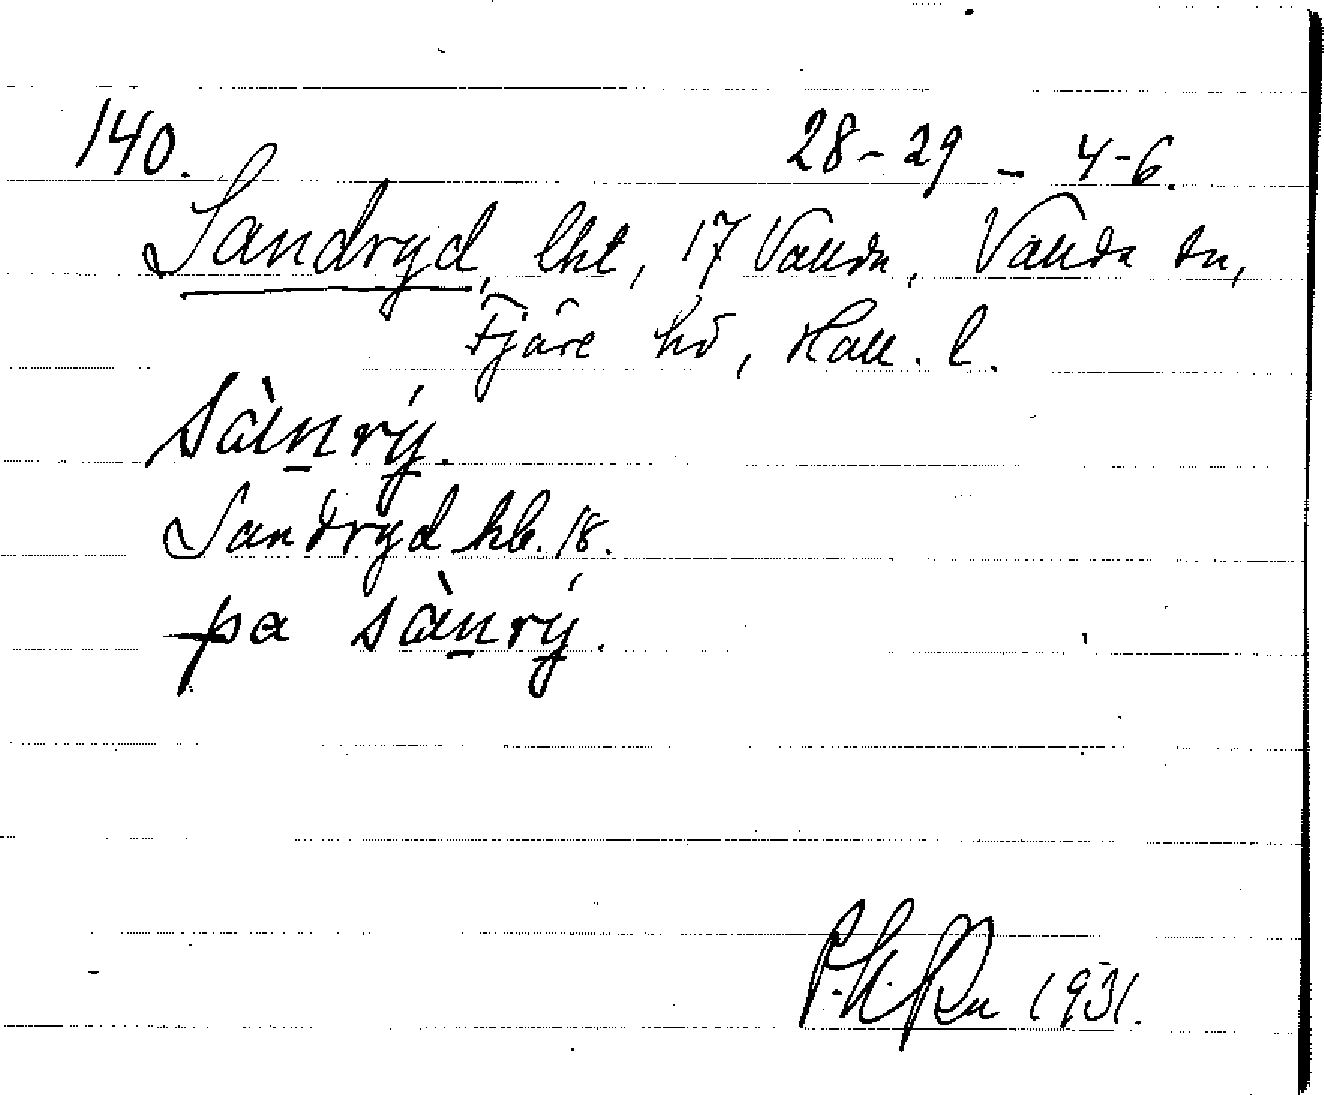 140. 28-29 - 4-6.
Sandryd, lht, 17 Vallda, Vallda sn,
Fjäre hd, Hall. l.
sàn̲rý.
Sandryd hb. 18.
pa sàn̲rý.
1931.